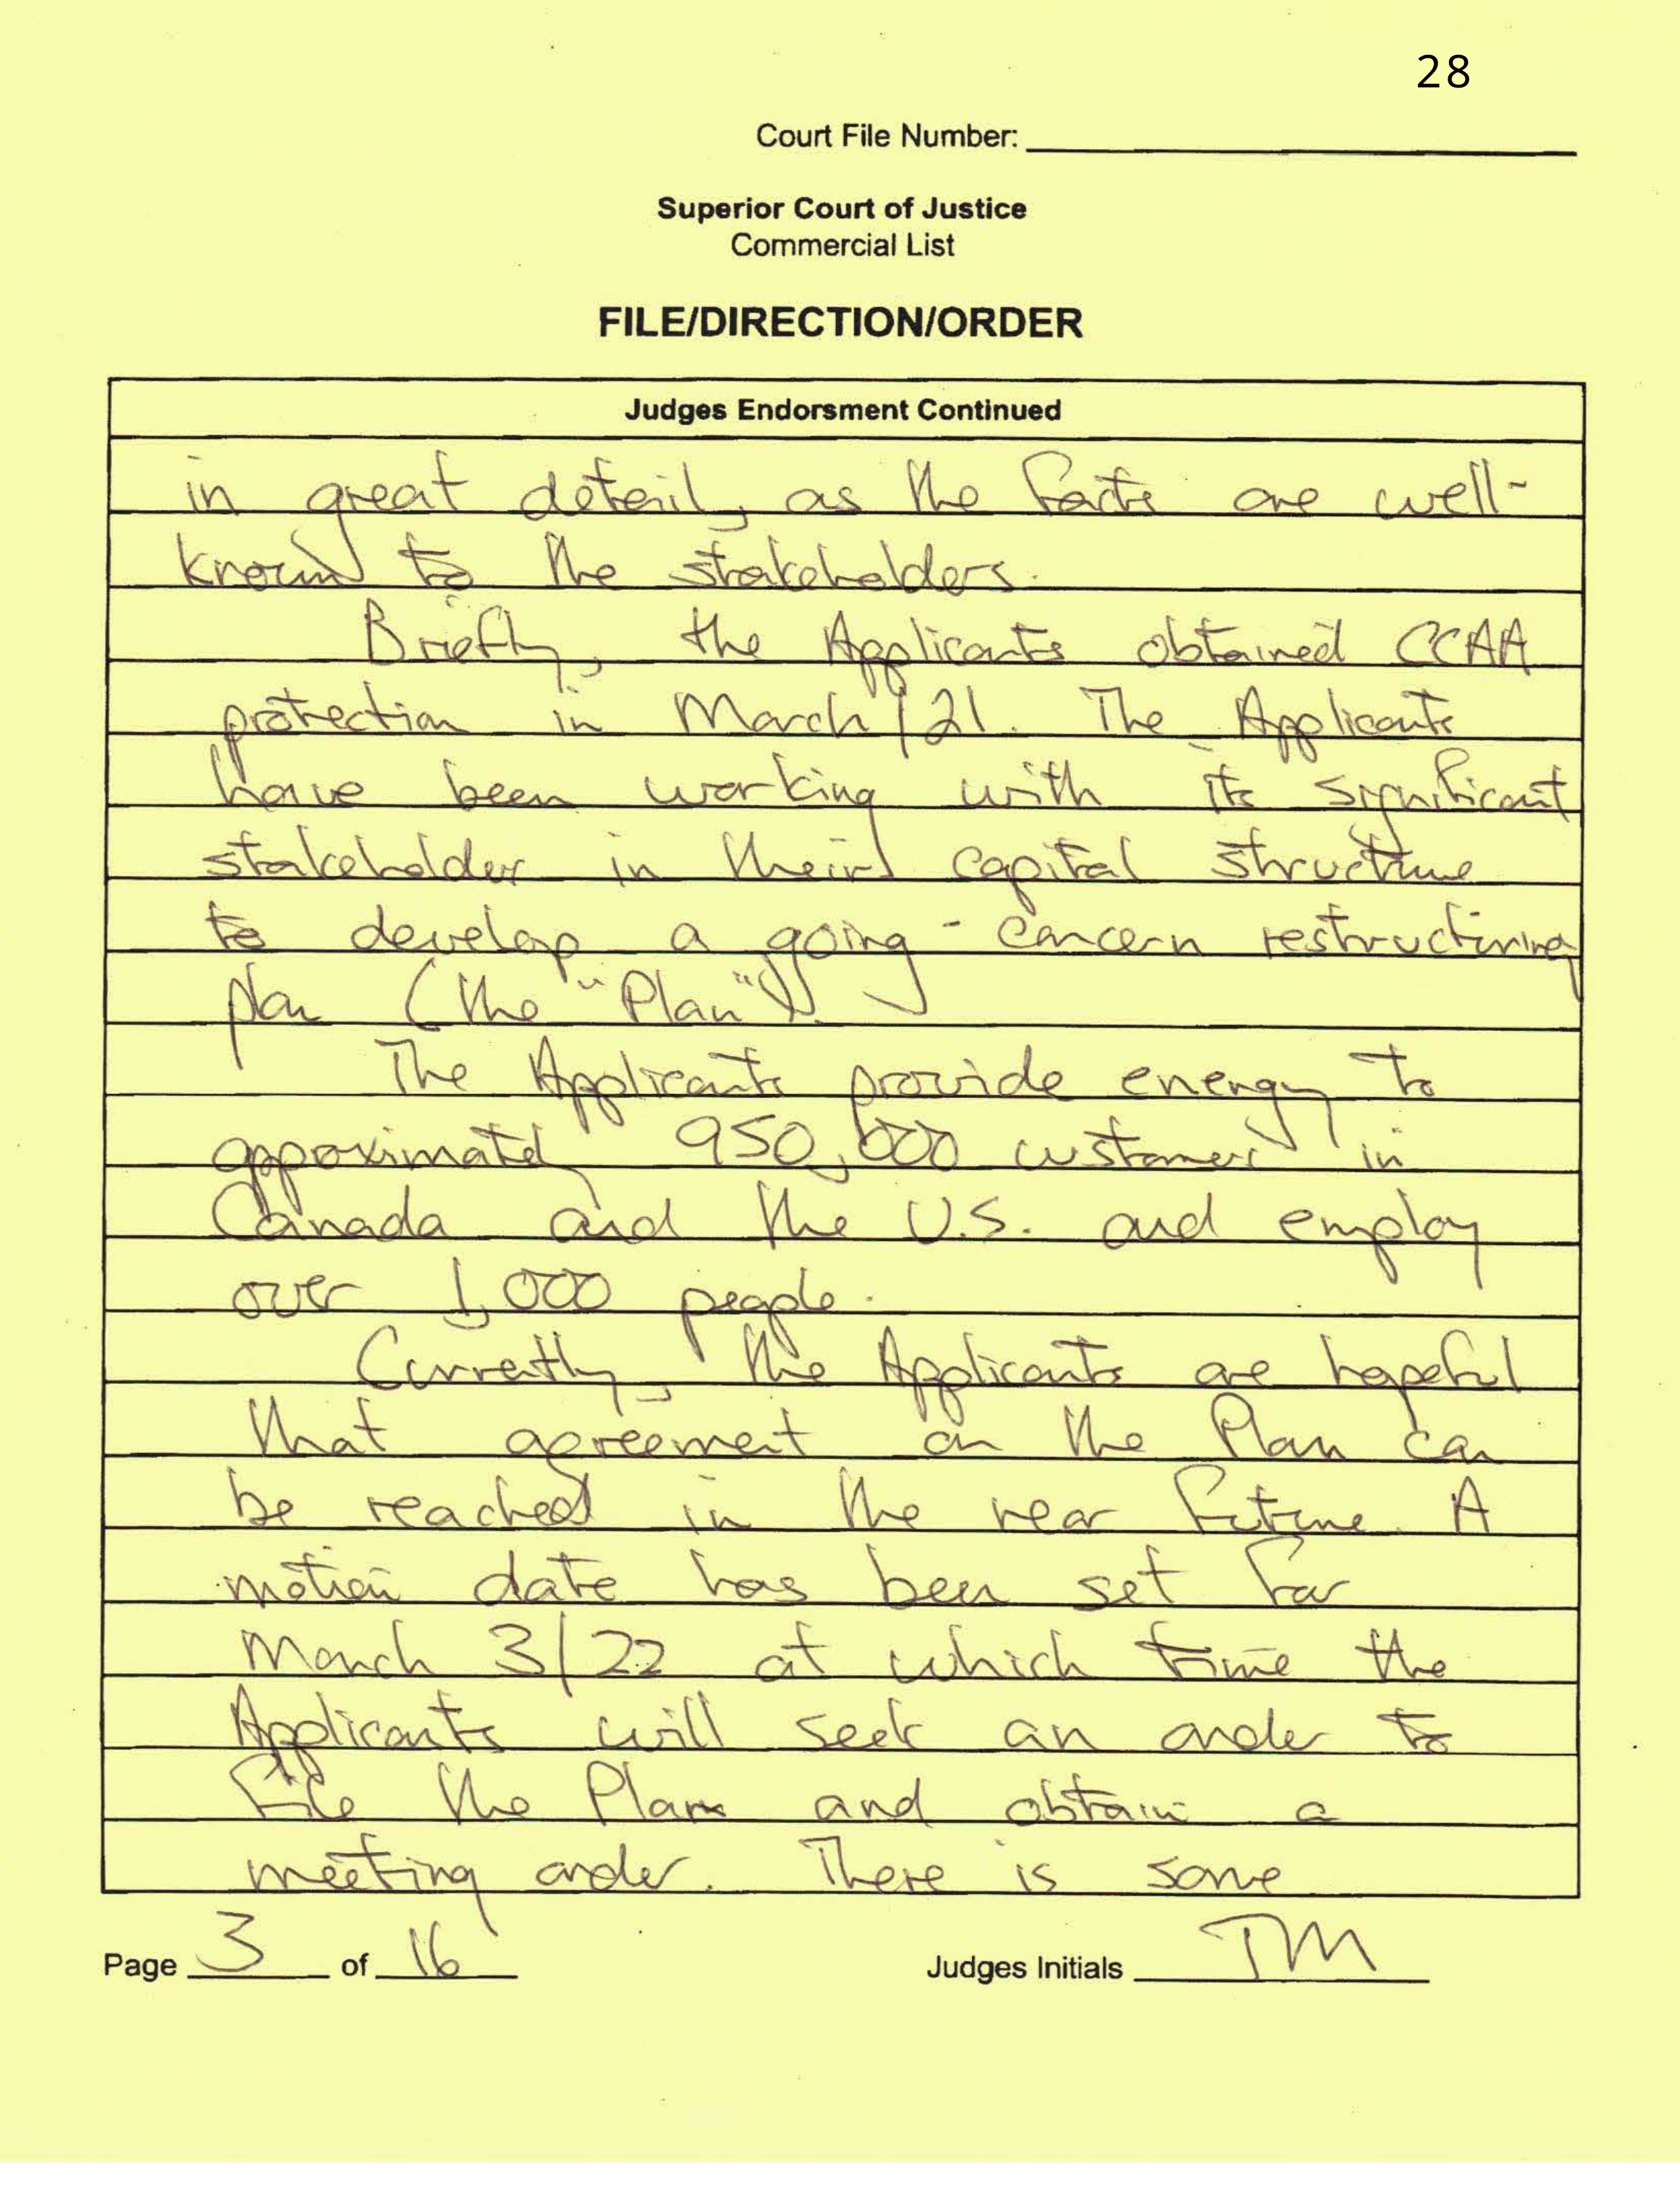 28
Court File Number:
Superior Court of Justice
Commercial List
FILE/DIRECTION/ORDER
Judges Endorsment Continued
in great detail, as the facts are well-
known to the stakeholders.
Briefly, the Applicants obtained CCAA
protection in March/21. The Applicants
have been working with its significant
stakeholder in their capital structure
to develop a going-concern restructuring
plan (the "Plan").
The Applicants provide energy to
approximately 950,000 customers in
Canada and the U.S. and employ
over 1,000 people.
Currently, the Applicants are hopeful
that agreement on the Plan can
be reached in the near future. A
motion date has been set for
March 3/22 at which time the
Applicants will seek an order to
file the Plan and obtain a
meeting order. There is some
Page 3 of 16
Judges Initials TM